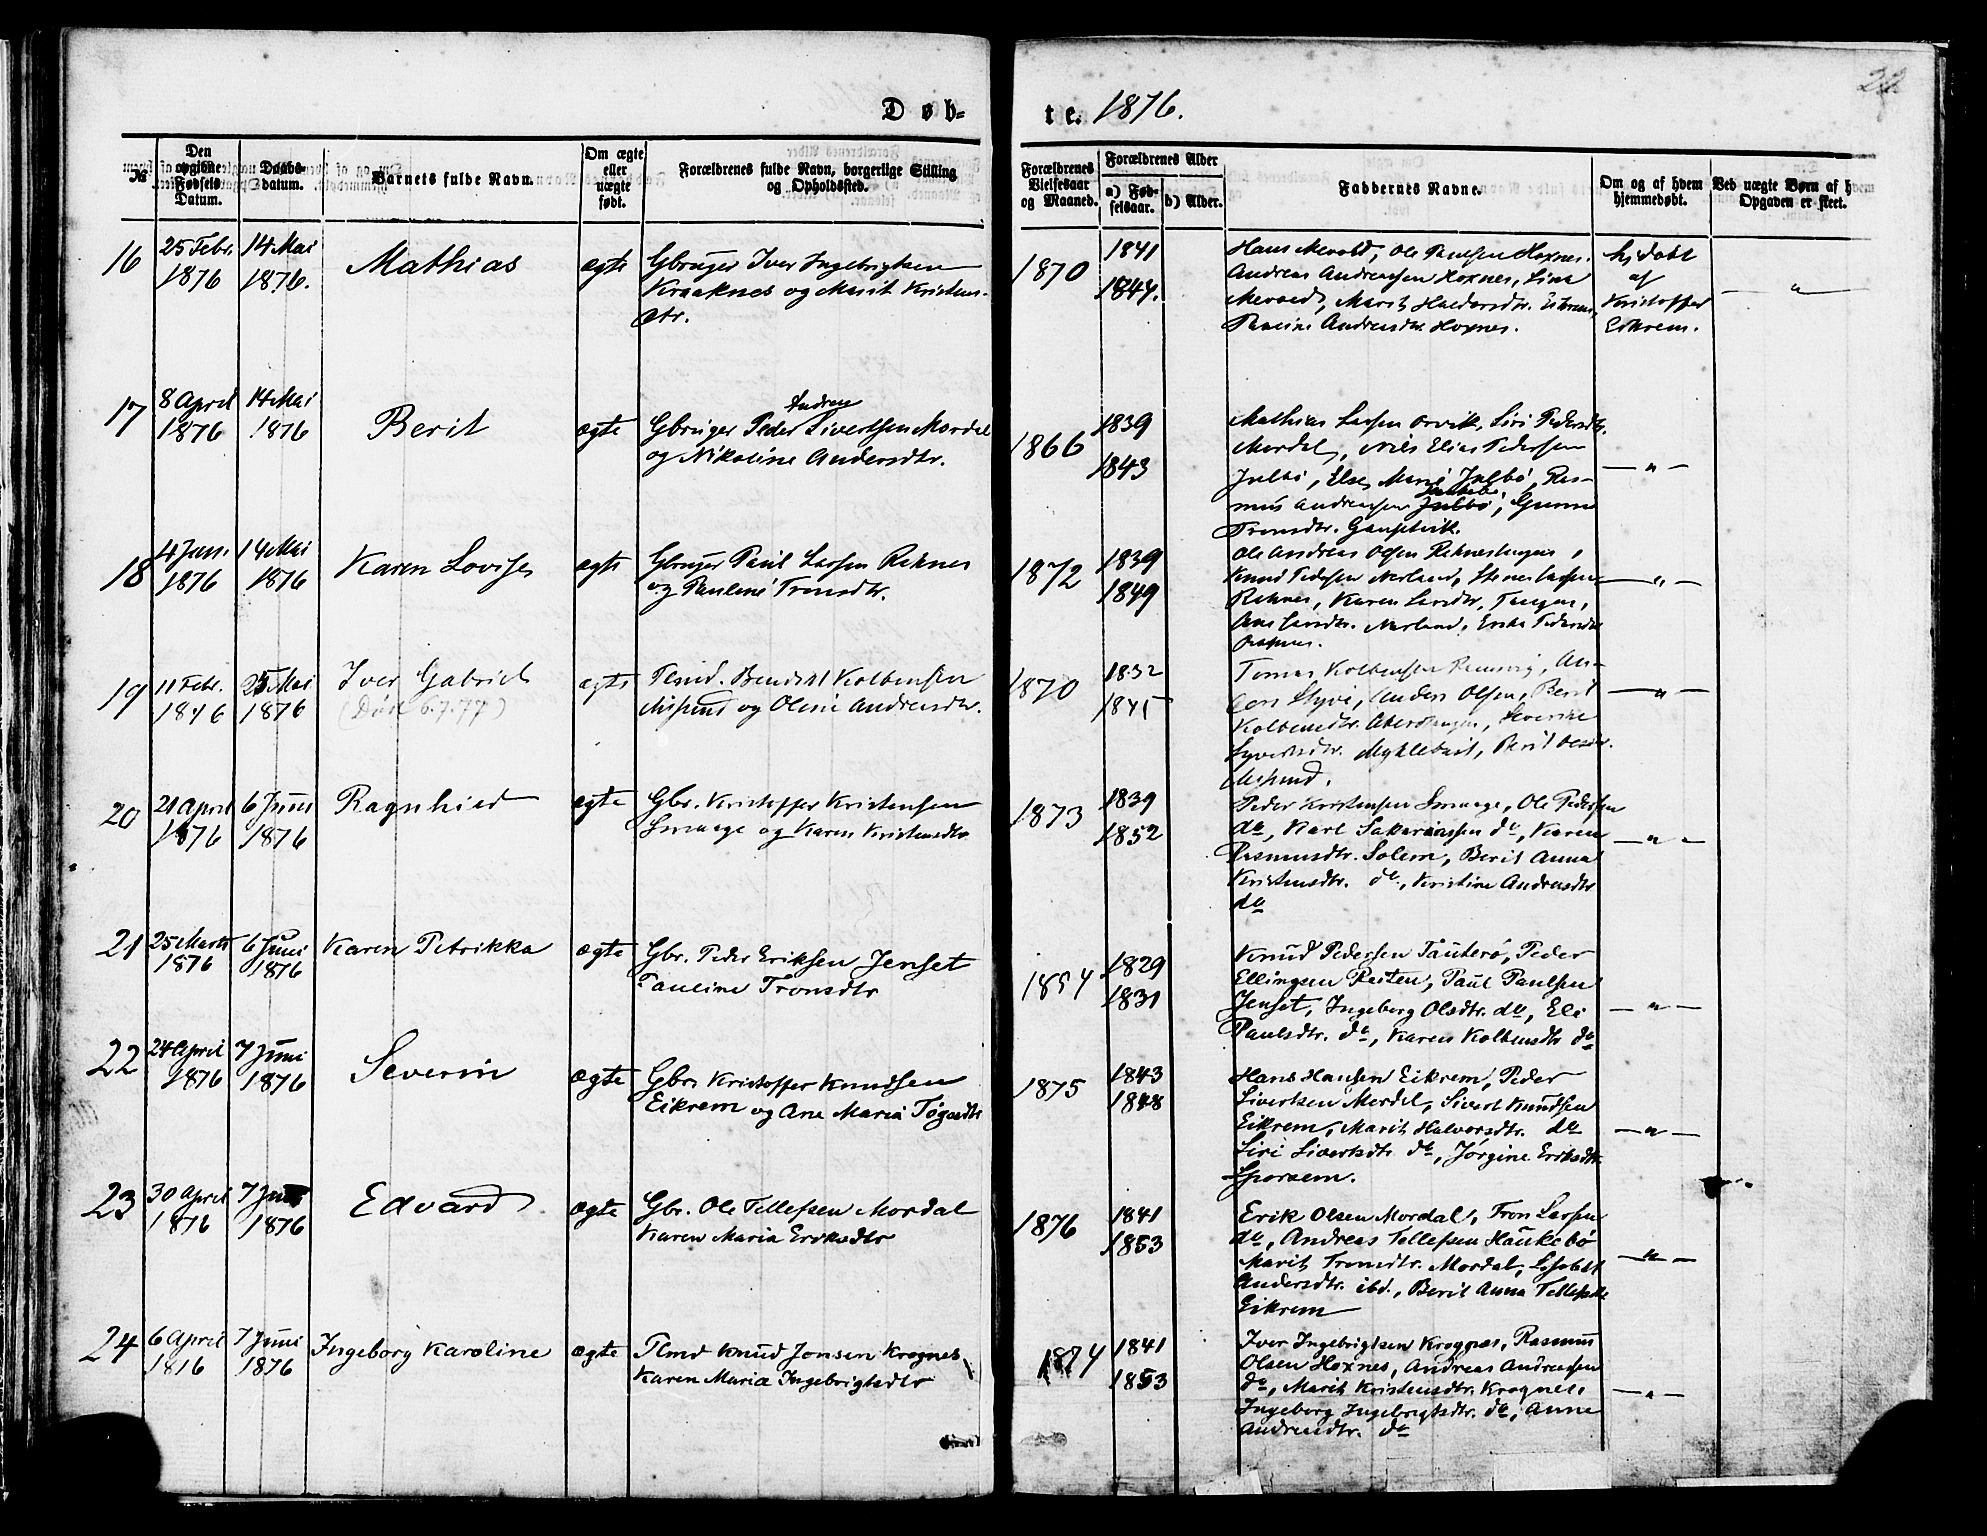 22
Døb-
te. 1876.
№
Den opgivne Fødsels Datum.
Daabs-datum.
Barnets fulde Navn.
Om ægte eller uægte født.
Forældrenes fulde Navn, borgerlige Stilling og Opholdssted.
Forældrenes Vielsesaar og Maaned.
Forældrenes Alder
a) Fød-selsaar.
b) Alder.
Faddernes Navne.
Om og af hvem hjemmedøbt.
Ved uægte Børn af hvem Opgaven er skeet.
16
25 Febr. 1876
14 Mai 1876.
Mathias
ægte
Gbruger Iver Ingebrigtsen
Kraaknes og Marit Kristens-
dtr.
1870
1841
1844.
Ole Paulsen Hoxnes.
Andreas Andreassen Hoxnes, Lina
Marit Haldorsdtr. Eikrem,
Andreasdtr. Hoxnes.
hj.døbt
af
Kristoffer
Eikrem.
— " —
17
8 April 1876
14 Mai 1876
Berit
ægte
Andreas
Gbruger Peder Sivertsen Mordal
og Nikoline Andersdtr.
1866
1839
1843
Mathias Larsen Orvik, Siri Pedersdtr.
Mordal, Nils Elias Pedersen
Julbø, Else Marie Julbø, Ras-
mus Andreassen Julbø, Gunni
Tronsdtr. Gauptvik.
— " —
18
4 Jan. 1876
14 Mai 1876
Karen Lovise
ægte
Gbruger Paul Larsen Reknes
og Pauline Tronsdtr.
1872
1839
1849
Ole Andreas Olsen Rekneshagen,
Knud Pedersen Nerland, Stener Larsen
Reknes, Karen Larsdtr. Tangen,
Larsdtr. Nerland, Pedersdtr
— " —
19
11 Febr. 1876
25 Mai 1876
Iver Gabriel
(Død 6.7.77)
ægte
Bendikt Kolbensen
og Oline Andreasdtr.
1870
1832
1845
Tomas Kolbensen An-
Anders Olsen, Berit
Kolbensdtr. Severine
Syvertsdtr. Myklebust, Berit
— " —
20
21 April 1876
6 Juni 1876
Ragnhild
ægte
Gbr. Kristoffer Kristensen
Smaage og Karen Kristensdtr
1873
1839
1852
Peder Kristensen Smaage, Ole Pedersen
do, Karl Sakariassen do, Karen
Rasmusdtr. Solem, Berit Anna
Kristensdtr. do, Kristine Andreasdtr
do
— " —
21
25 Marts 1876
6 Juni 1876
Karen Petrikka
ægte
Gbr. Peder Eriksen Jenset
Pauline Tronsdtr
1854
1829
1831
Knud Pedersen Tauterø, Peder
Ellingsen Reiten, Paul Paulsen
Jenset, Ingeborg Olsdtr. do, Eli
Paulsdtr. do, Karen Kolbensdtr do
— " —
22
24 April 1876
7 Juni 1876
Severin
ægte
Gbr. Kristoffer Knudsen
Eikrem og Ane Maria
1875
1843
1848
Hans Hansen Eikrem, Peder
Sivertsen Mordal, Sivert Knudsen
Eikrem, Marit Halvorsdtr. do
Siri Sivertsdtr do, Jørgine Eriksdtr
Sporsem.
— " —
23
30 April 1876
7 Juni 1876
Edvard
ægte
Gbr. Ole Tellefsen Mordal
Karen Maria Eriksdtr
1876
1841
1853
Erik Olsen Mordal, Tron Larsen
do, Andreas Tellefsen Haukebø
Marit Tronsdtr. Mordal, Lisabet
Andersdtr. ibd., Berit Anna Tellefsdtr
Eikrem
— " —
24
6 April 1876
7 Juni 1876
Ingeborg Karoline
ægte
Plmd Knud Jonsen Krognes
Karen Maria Ingebrigtsdtr
1874
1841
1853
Iver Ingebrigtsen Krognes, Rasmus
Olsen Hoxnes, Andreas Andreassen
do, Marit Kristensdtr. Krognes,
Ingeborg Ingebrigtsdtr. do, Anne
Andreasdtr. do
— " —